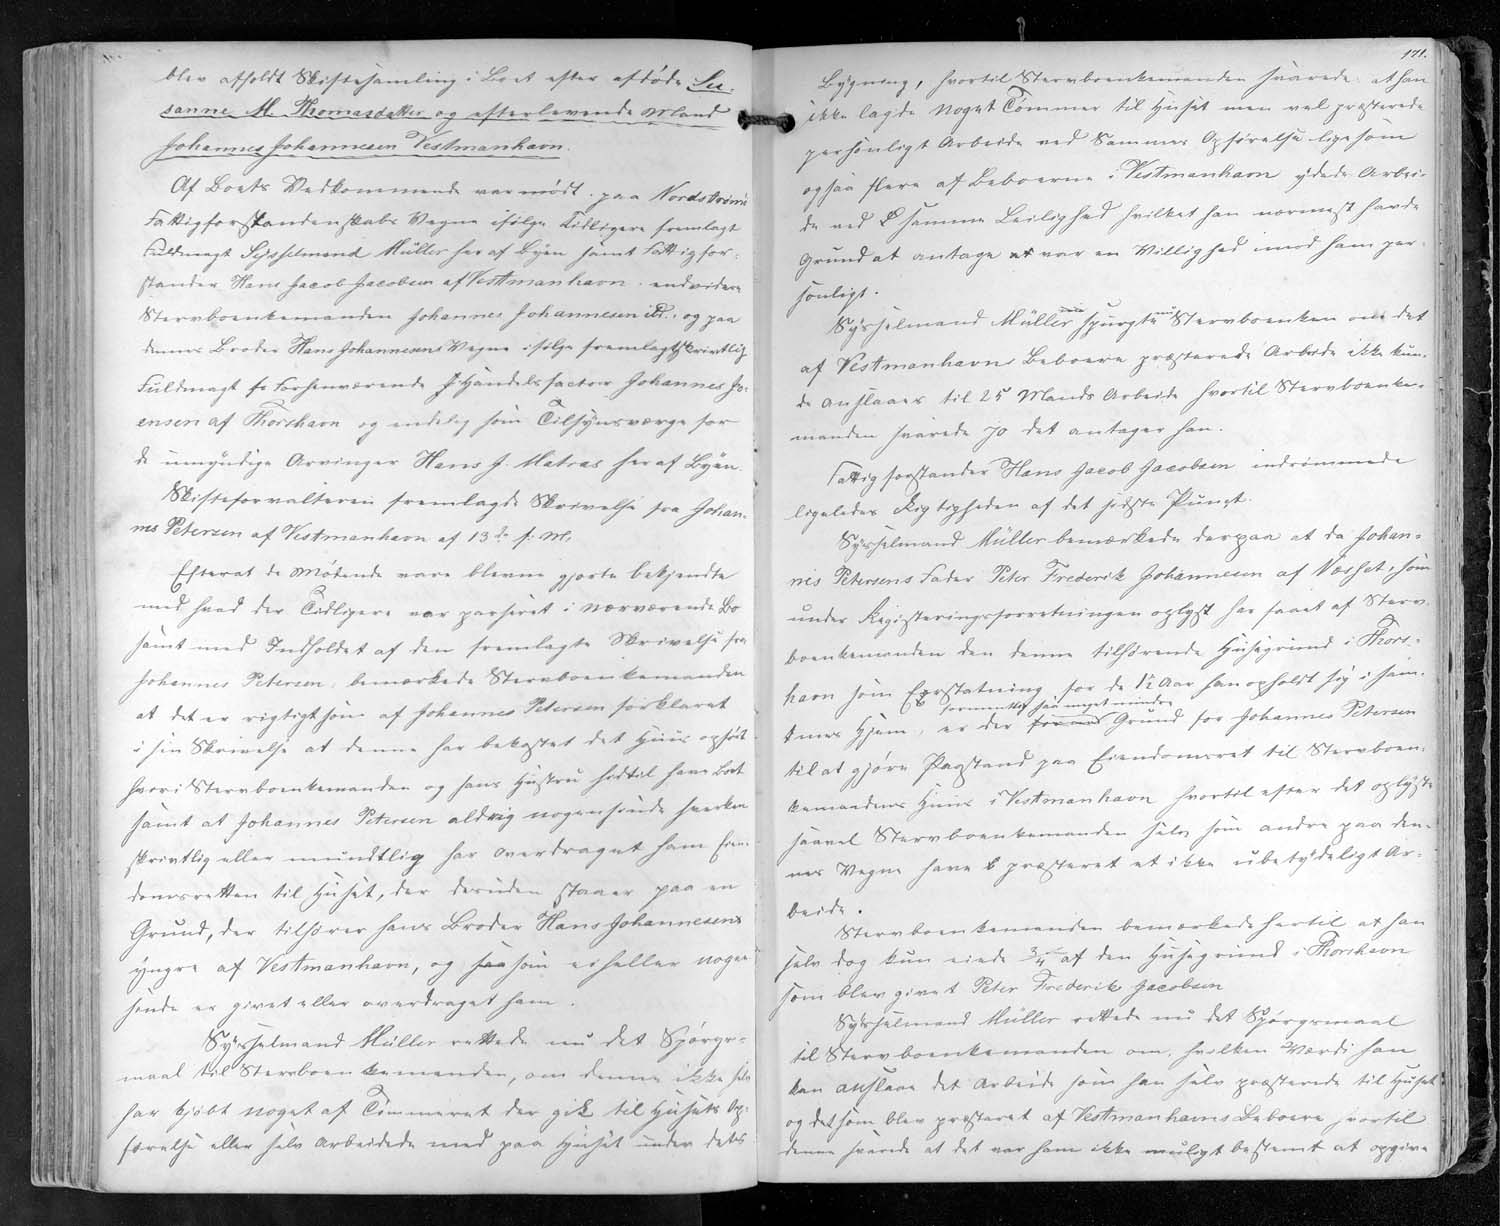 blev afholdt Skiftesamling i Boet efter afdøde Su-
sanne M. Thomasdatter og efterlevende Mand
Johannes Johannesen Vestmanhavn.
Af Boets Vedkommende var mødt paa Nordstrømø
Fattigforstanderskabs Vegne ifølge tidligere fremlagt
Fuldmagt Sysselmand Müller her af Byen samt Fattigfor-
stander Hans Jacob Jacobsen af Vestmanhavn endvidere
Stervboenkemanden Johannes Johannesen ibd. og paa
dennes Broder Hans Johannesens Vegne ifølge fremlagt skrivtlig
Fuldmagt fr forhenværende Handelsfactor Johannes Jo-
ensen af Thorshavn og endelig som Tilsynsværge for
de umyndige Arvinger Hans J. Matras her af Byen.
Skifteforvalteren fremlagde Skrivelse fra Johan-
nes Petersen af Vestmanhavn af 13de f. M.
Efterat de Mødende vare blevne gjorte bekjendte
med hvad der tidligere var passeret i nærværende Bo
samt med Indholdet af den fremlagte Skrivelse fra
Johannes Petersen, bemærkede Stervboenkemanden
at det er rigtigt som af Johannes Petersen forklaret
i sin Skrivelse at denne har bekostet det Huus opført
hvori Stervboenkemanden og hans Hustru hidtil have boet
samt at Johannes Petersen aldrig nogensinde hverken
skrivtlig eller mundtlig har overdraget ham Eien-
domsretten til Huset, der desuden staaer paa en
Grund, der tilhører hans Broder Hans Johannesen
yngre af Vestmanhavn, og som ei heller nogen
sinde er givet eller overdraget ham.
Sysselmand Müller rettede nu det Spørgs-
maal til Stervboenkemanden, om denne ikke selv
har kjøbt noget af Tømmeret der gik til Husets Op-
førelse eller selv arbeidede med paa Huset under dets
171.
Bygning, hvortil Stervboenkemanden svarede at han
ikke lagde noget Tømmer til Huset men vel præsterede
personligt Arbeide ved Sammes Opførelse ligesom
ogsaa flere af Beboerne i Vestmanhavn ydede Arbei-
de ved samme Leilighed hvilket han nærmest havde
Grund at antage at var en Villighed imod ham per-
sonligt.
Sysselmand Müller spurgte Stervboenken om det
af Vestmanhavns Beboere præsterede Arbeide ikke kun-
de anslaaes til 25 Mands Arbeide hvortil Stervboenke-
manden svarede jo det antager han.
Fattigforstander Hans Jacob Jacobsen indrømmede
ligeledes Rigtigheden af det sidste Punct.
Sysselmand Müller bemærkede derpaa at da Johan-
nes Petersens Fader Peter Frederik Johannesen af Næshet, som
under Registeringsforretningen oplyst har faaet af Sterv-
boenkemanden den denne tilhørende Husegrund i Thors-
havn som Erstatning for de 1½ Aar han opholdt sig i sam-
mes Hjem, er der formentlig saa meget mindre Grund for Johannes Petersen
til at gjøre Paastand paa Eiendomsret til Stervboen-
kemandens Huus i Vestmanhavn hvortil efter det oplyste
saavel Stervboenkemanden selv som andre paa den-
nes Vegne have præsteret et ikke ubetydeligt Ar-
beide.
Stervboenkemanden bemærkede hertil at han
selv dog kun eiede 3/4 af den Husegrund i Thorshavn
som blev givet Peter Frederik Jacobsen
Sysselmand Müller rettede nu det Spørgsmaal
til Stervboenkemanden om, hvilken Værdi han
kan anslaae det Arbeide som han selv præsterede til Huset
og det som blev præsteret af Vestmanhavns Beboere hvortil
denne svarede at det var ham ikke muligt bestemt at opgive